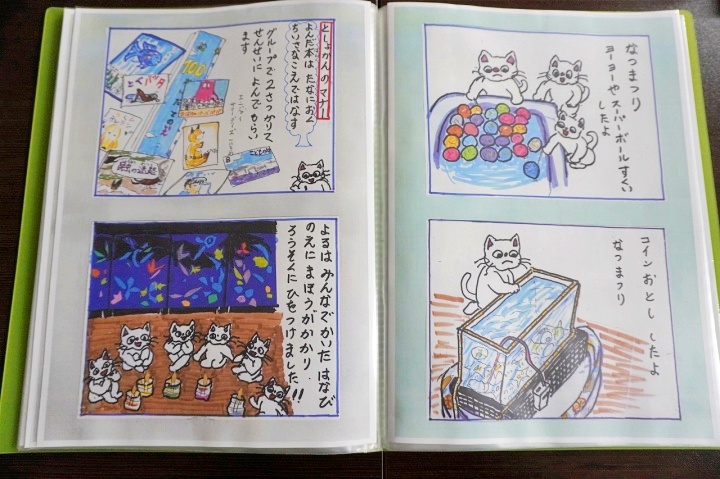 としょかんのマナー
よんだ本は たなにおく
ちいさなこえではなす
グループで2さつかりて、
せんせいに よんで もらい
ます
100
バッタ
よるは みんなでかいた はなび
のえに まほうがかかり
ろうそくに ひをつけました!!
なつまつり
ヨーヨーや スーパーボールすくい
したよ
コインおとし したよ
なつまつり